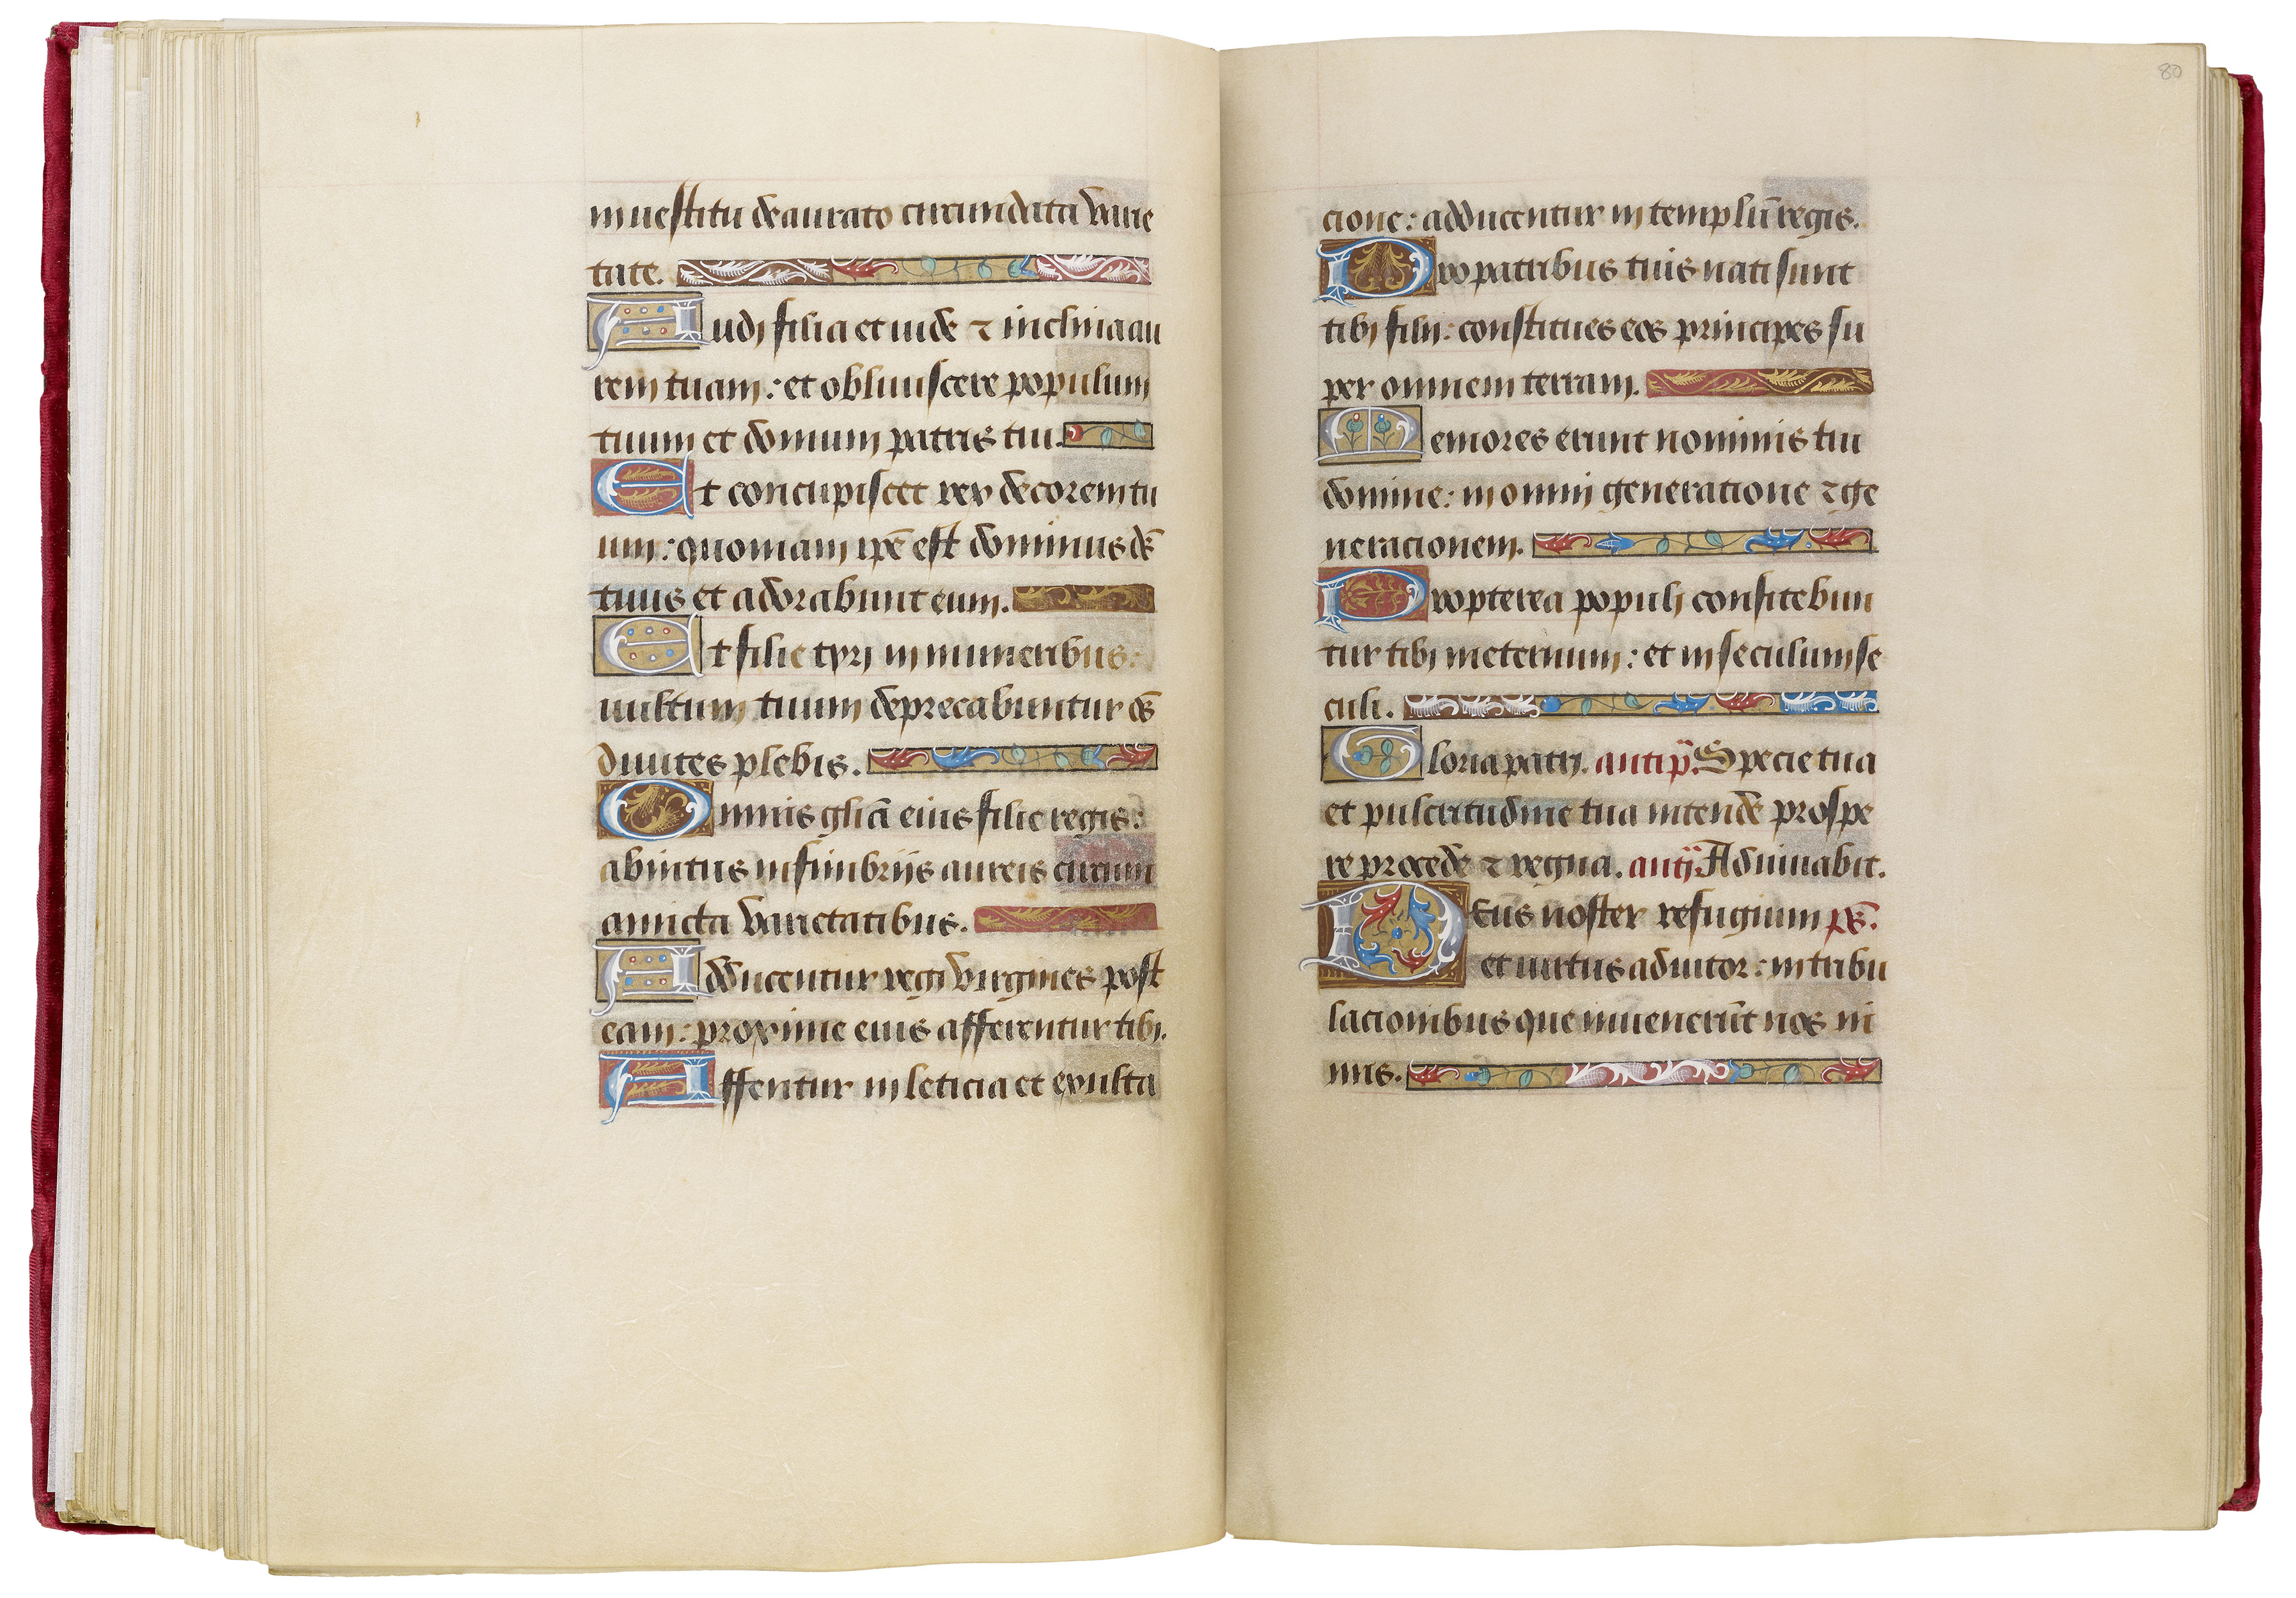 in uestitu deaurato circundata varie
tate.
Audi filia et uide ⁊ inclina au
rem tuam: et obliuiscere populum
tuum et domum patris tui.
Et concupiscet rex decorem tu
um: quoniam ip̄e est dominus de᷒
tuus et adorabunt eum.
Et filie tyri in muneribus:
uultum tuum deprecabuntur os̄
diuites plebis.
Omnis glīa eius filie regis:
abintus in fimbriis aureis circum
amicta varietatibus.
Adducentur regi virgines post
eam: proxime eius afferentur tibi.
Affentur in leticia et exulta
80
cione: adducentur in templū regis.
Pro patribus tuis nati sunt
tibi filii: constitues eos principes su
per omnem terram.
Memores erunt nominis tui
domine: in omni generatione ⁊ ge
nerationem.
Propterea populi confitebun
tur tibi in eternum: et in seculum se
culi.
Gloria patri. antip̄. Specie tua
et pulcritudine tua intende prospe
re procede ⁊ regna. anti. Adiuuabit.
DEus noster refugium ps̄.
et uirtus adiutor: in tribu
lacionibus que inuenerūt nos ni
mis.